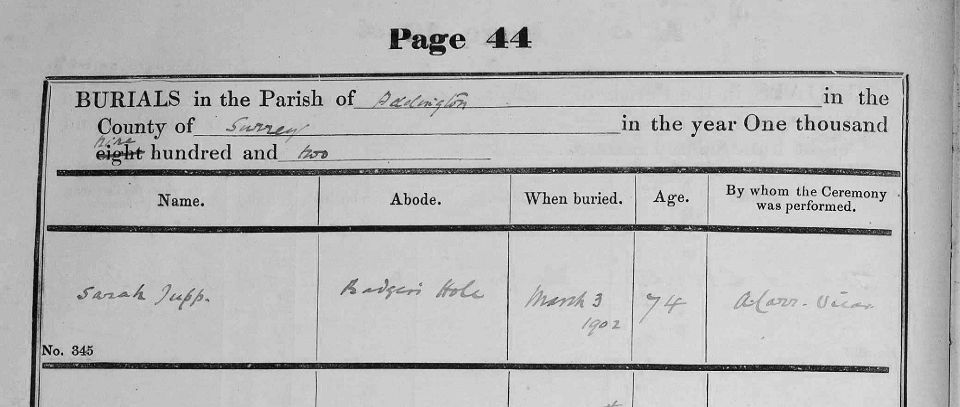 Page 44
BURIALS in the Parish of Addington in the
County of Surrey in the year One thousand
nine
eight hundred and two
Name. Abode. When buried. Age. By whom the Ceremony was performed.
Sarah Jupp. Badgers Hole March 3 1902 74 A. Carr. Vicar
No. 345